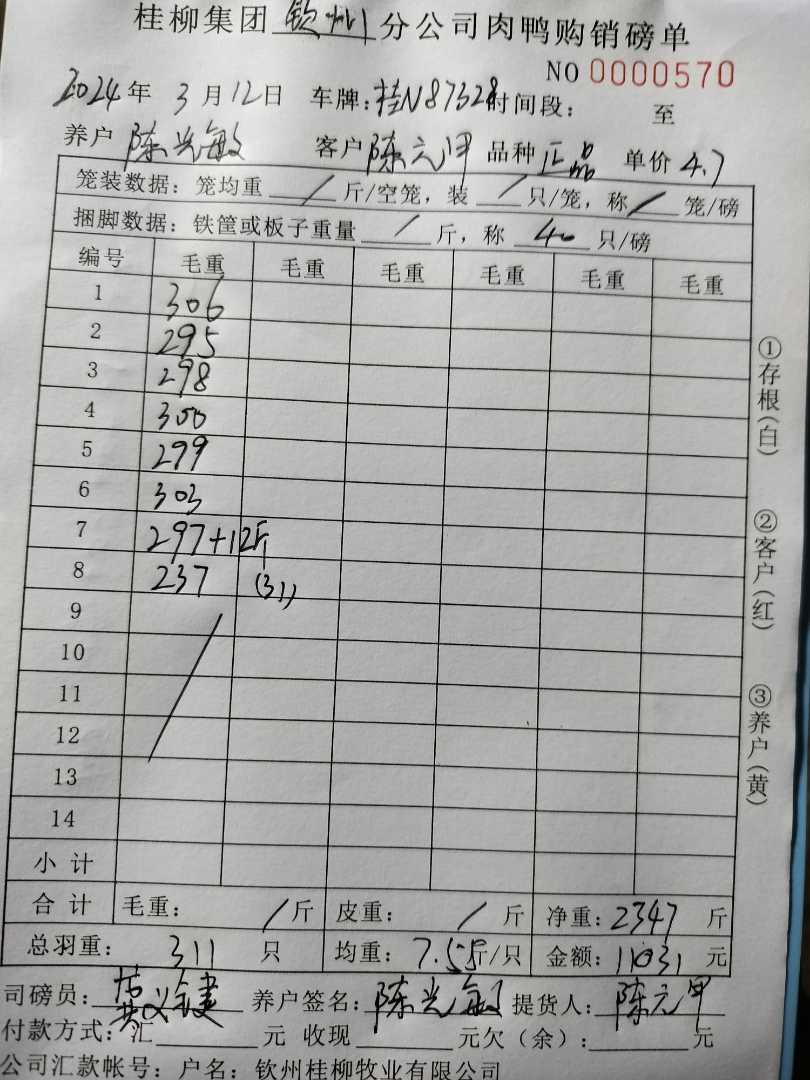 桂柳集团 钦州 分公司肉鸭购销磅单
NO 0000570
2024年 3月12日 车牌:桂N87328时间段: 至
养户 陈光敏 客户 陈元甲 品种 正品 单价 4.7
笼装数据:笼均重 / 斤/空笼,装 / 只/笼,称 / 笼/磅
捆脚数据:铁筐或板子重量 / 斤,称 40 只/磅
编号 毛重 毛重 毛重 毛重 毛重 毛重
1 306
2 295
3 298
4 300
5 299
6 303
7 297+12斤
8 237 (31)
9
10
11
12
13
14
小计
合计 毛重: / 斤 皮重: / 斤 净重:2347 斤
总羽重: 311 只 均重:7.55斤/只 金额:11031 元
司磅员: 养户签名:陈光敏 提货人:陈元甲
付款方式:汇 元 收现 元欠(余): 元
公司汇款帐号:户名:钦州桂柳牧业有限公司
①存根(白)
②客户(红)
③养户(黄)